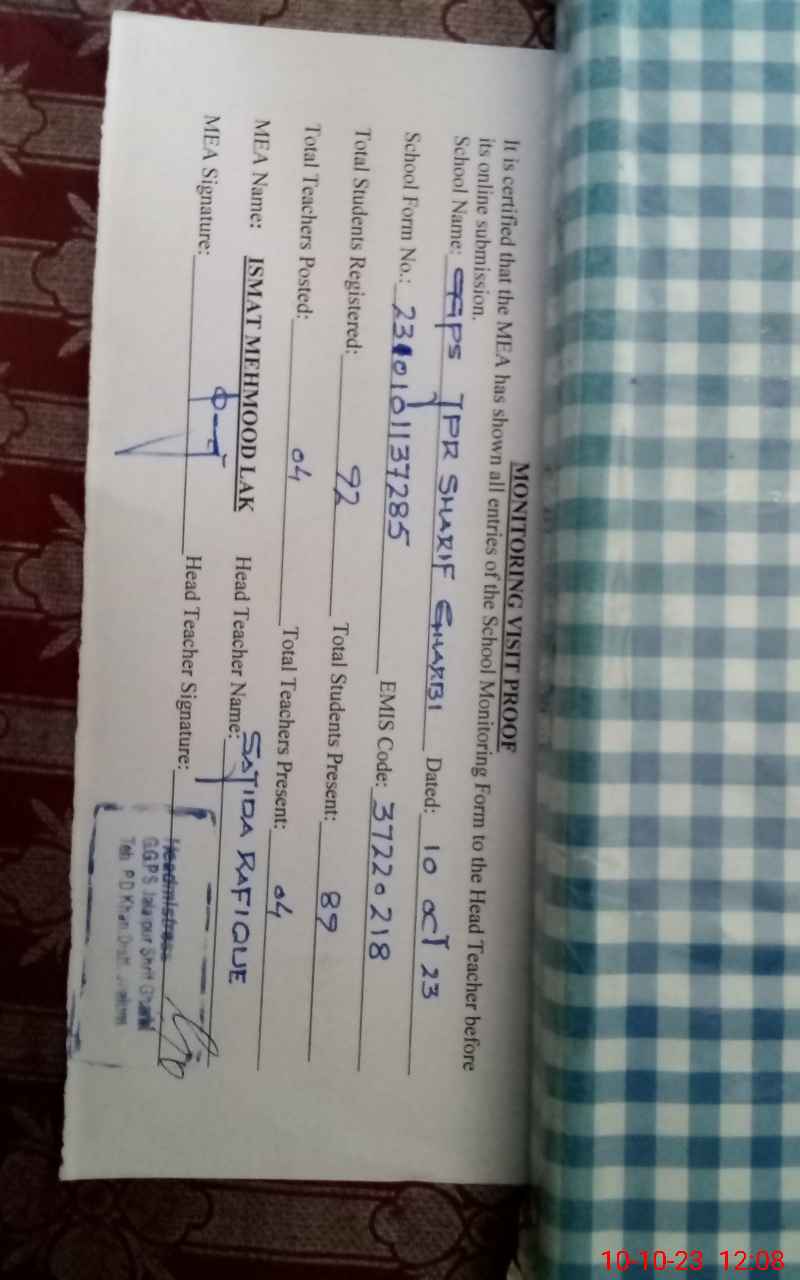 MONITORING VISIT PROOF
It is certified that the MEA has shown all entries of the School Monitoring Form to the Head Teacher before
its online submission.
School Name: GGPS JPR SHARIF GHARBI Dated: 10 OCT 23
School Form No.: 2310101137285 EMIS Code: 37220218
Total Students Registered: 92 Total Students Present: 89
Total Teachers Posted: 04 Total Teachers Present: 04
MEA Name: ISMAT MEHMOOD LAK Head Teacher Name: SAJIDA RAFIQUE
MEA Signature: Head Teacher Signature:
Headmistress
GGPS Jalalpur Shrif Gharbi
Teh. P.D Khan Distt
10-10-23 12:08